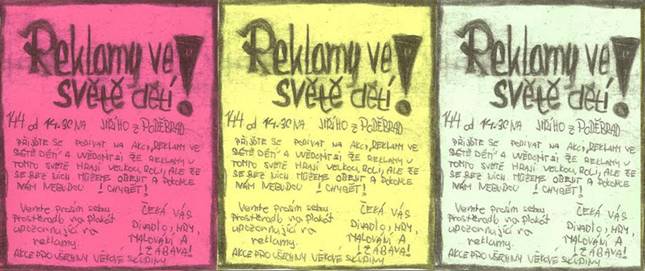 Reklamy ve
světě dětí!
14.4 od 14.30 NA JIŘÍHO z PODĚBRAD
PŘIJĎTE SE PODÍVAT NA AKCI, REKLAMY VE
SVĚTĚ DĚTÍ" A UVĚDOMIT SI ŽE REKLAMY V
TOMTO SVĚTĚ HRAJÍ VELKOU ROLI, ALE ŽE
SE BEZ NICH MŮŽEME OBEJÍT A
NÁM NEBUDOU ! CHYBĚT!
Vemte prosím sebou
prostěradlo na plakát
upozorňující na
reklamy.
ČEKÁ VÁS
DIVADLO, HRY,
MALOVÁNÍ A
! ZÁBAVA!
AKCE PRO VŠECHNY VĚKOVÉ SKUPINY
Reklamy ve
světě dětí!
14.4 od 14.30 NA JIŘÍHO z PODĚBRAD
PŘIJĎTE SE PODÍVAT NA AKCI, REKLAMY VE
SVĚTĚ DĚTÍ" A UVĚDOMIT SI ŽE REKLAMY V
TOMTO SVĚTĚ HRAJÍ VELKOU ROLI, ALE ŽE
SE BEZ NICH MŮŽEME OBEJÍT A
NÁM NEBUDOU ! CHYBĚT!
Vemte prosím sebou
prostěradlo na plakát
upozorňující na
reklamy.
ČEKÁ VÁS
DIVADLO, HRY,
MALOVÁNÍ A
! ZÁBAVA!
AKCE PRO VŠECHNY VĚKOVÉ SKUPINY
Reklamy ve
světě dětí!
14.4 od 14.30 NA JIŘÍHO z PODĚBRAD
PŘIJĎTE SE PODÍVAT NA AKCI, REKLAMY VE
SVĚTĚ DĚTÍ" A UVĚDOMIT SI ŽE REKLAMY V
TOMTO SVĚTĚ HRAJÍ VELKOU ROLI, ALE ŽE
SE BEZ NICH MŮŽEME OBEJÍT A
NÁM NEBUDOU ! CHYBĚT!
Vemte prosím sebou
prostěradlo na plakát
upozorňující na
reklamy.
ČEKÁ VÁS
DIVADLO, HRY,
MALOVÁNÍ A
! ZÁBAVA!
AKCE PRO VŠECHNY VĚKOVÉ SKUPINY